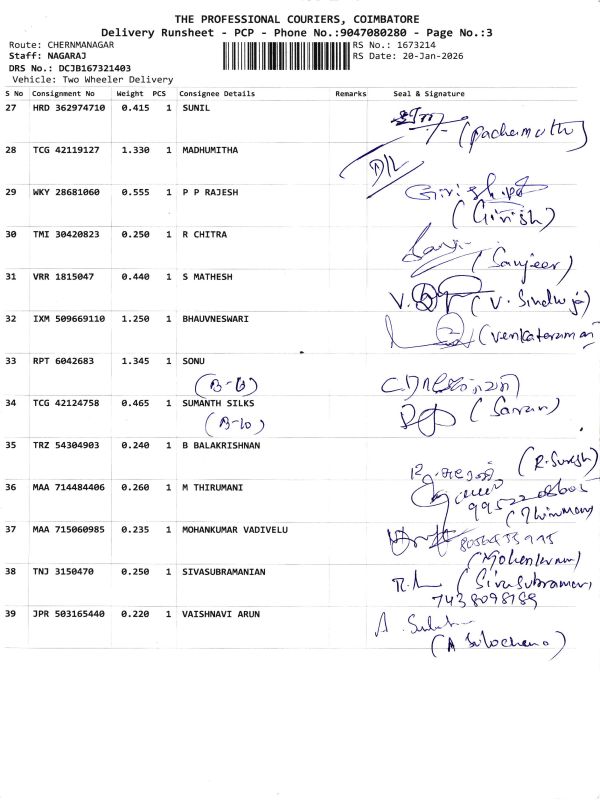 THE PROFESSIONAL COURIERS, COIMBATORE
Delivery Runsheet - PCP - Phone No.:9047080280 - Page No.:3
Route: CHERNMANAGAR RS No.: 1673214
Staff: NAGARAJ RS Date: 20-Jan-2026
DRS No.: DCJB167321403
Vehicle: Two Wheeler Delivery
S No Consignment No Weight PCS Consignee Details Remarks Seal & Signature
27 HRD 362974710 0.415 1 SUNIL
28 TCG 42119127 1.330 1 MADHUMITHA D/L
29 WKY 28681060 0.555 1 P P RAJESH
(Girish)
30 TMI 30420823 0.250 1 R CHITRA
(Sanjeev)
31 VRR 1815047 0.440 1 S MATHESH
(V. Sindhuja)
32 IXM 509669110 1.250 1 BHAUVNESWARI
(Venkataraman)
33 RPT 6042683 1.345 1 SONU
34 TCG 42124758 0.465 1 SUMANTH SILKS (Saran)
(B-10)
35 TRZ 54304903 0.240 1 B BALAKRISHNAN (R. Suresh)
36 MAA 714484406 0.260 1 M THIRUMANI
37 MAA 715060985 0.235 1 MOHANKUMAR VADIVELU
38 TNJ 3150470 0.250 1 SIVASUBRAMANIAN
7438098189
39 JPR 503165440 0.220 1 VAISHNAVI ARUN